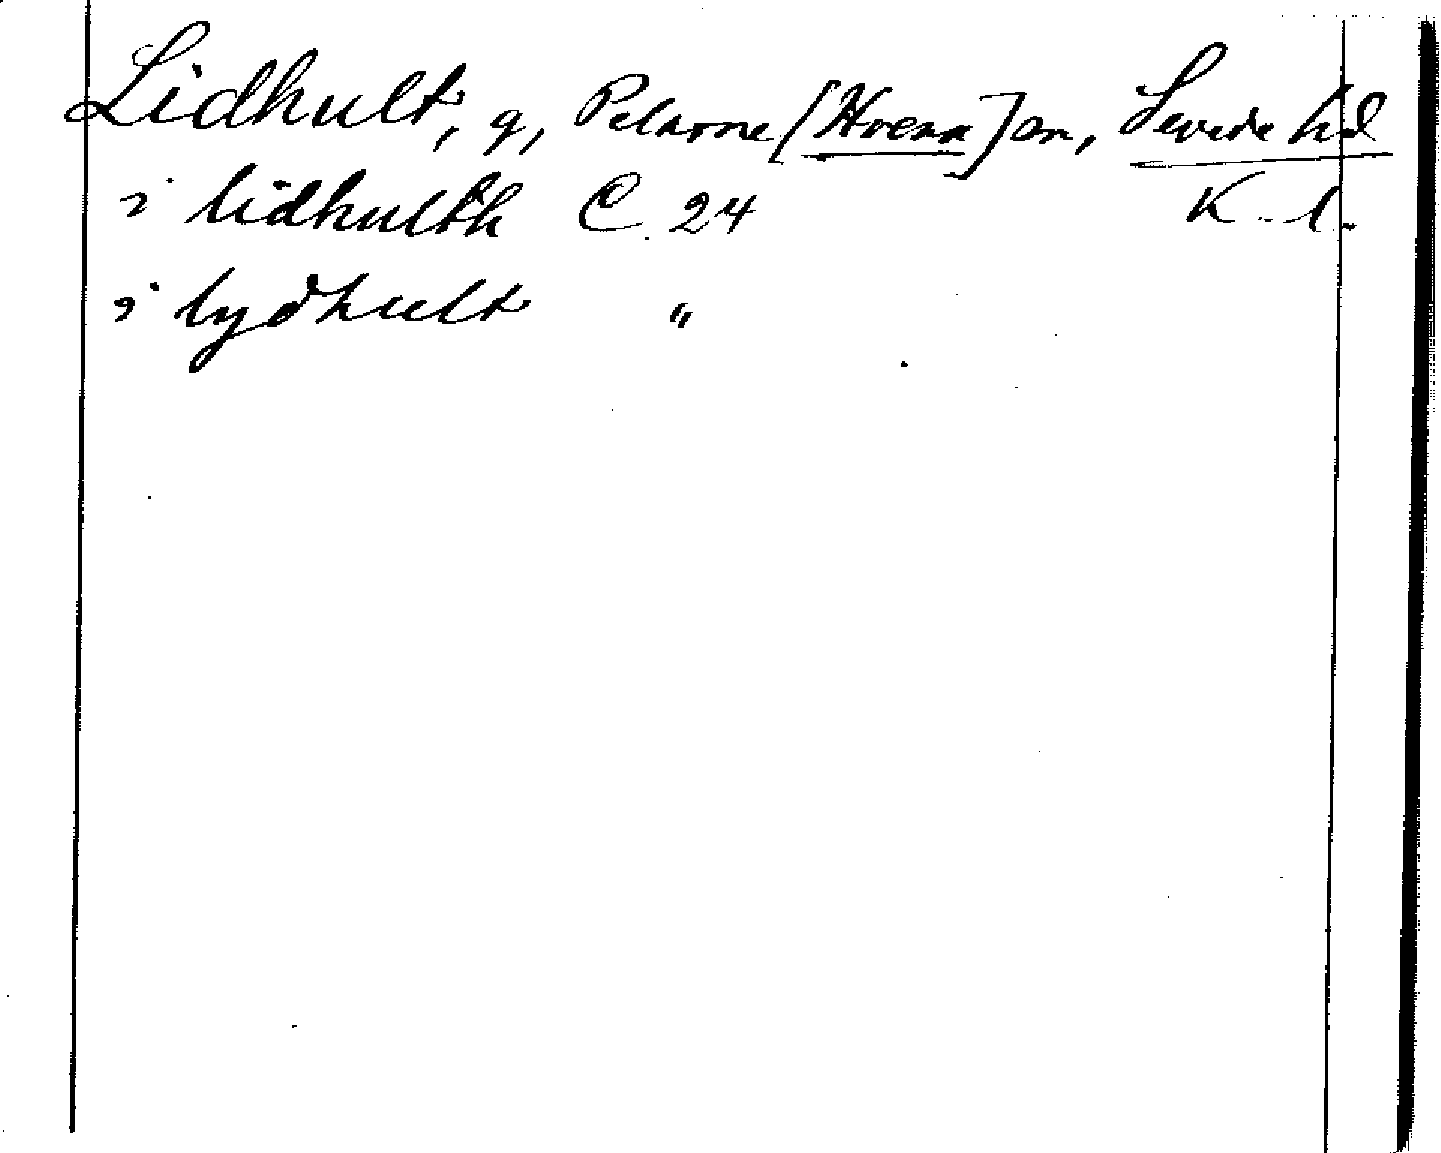 Lidhult, g, Pelarne [Hvena] sn, Sevede hd
i lidhulth C. 24 K. l.
i lydhult "